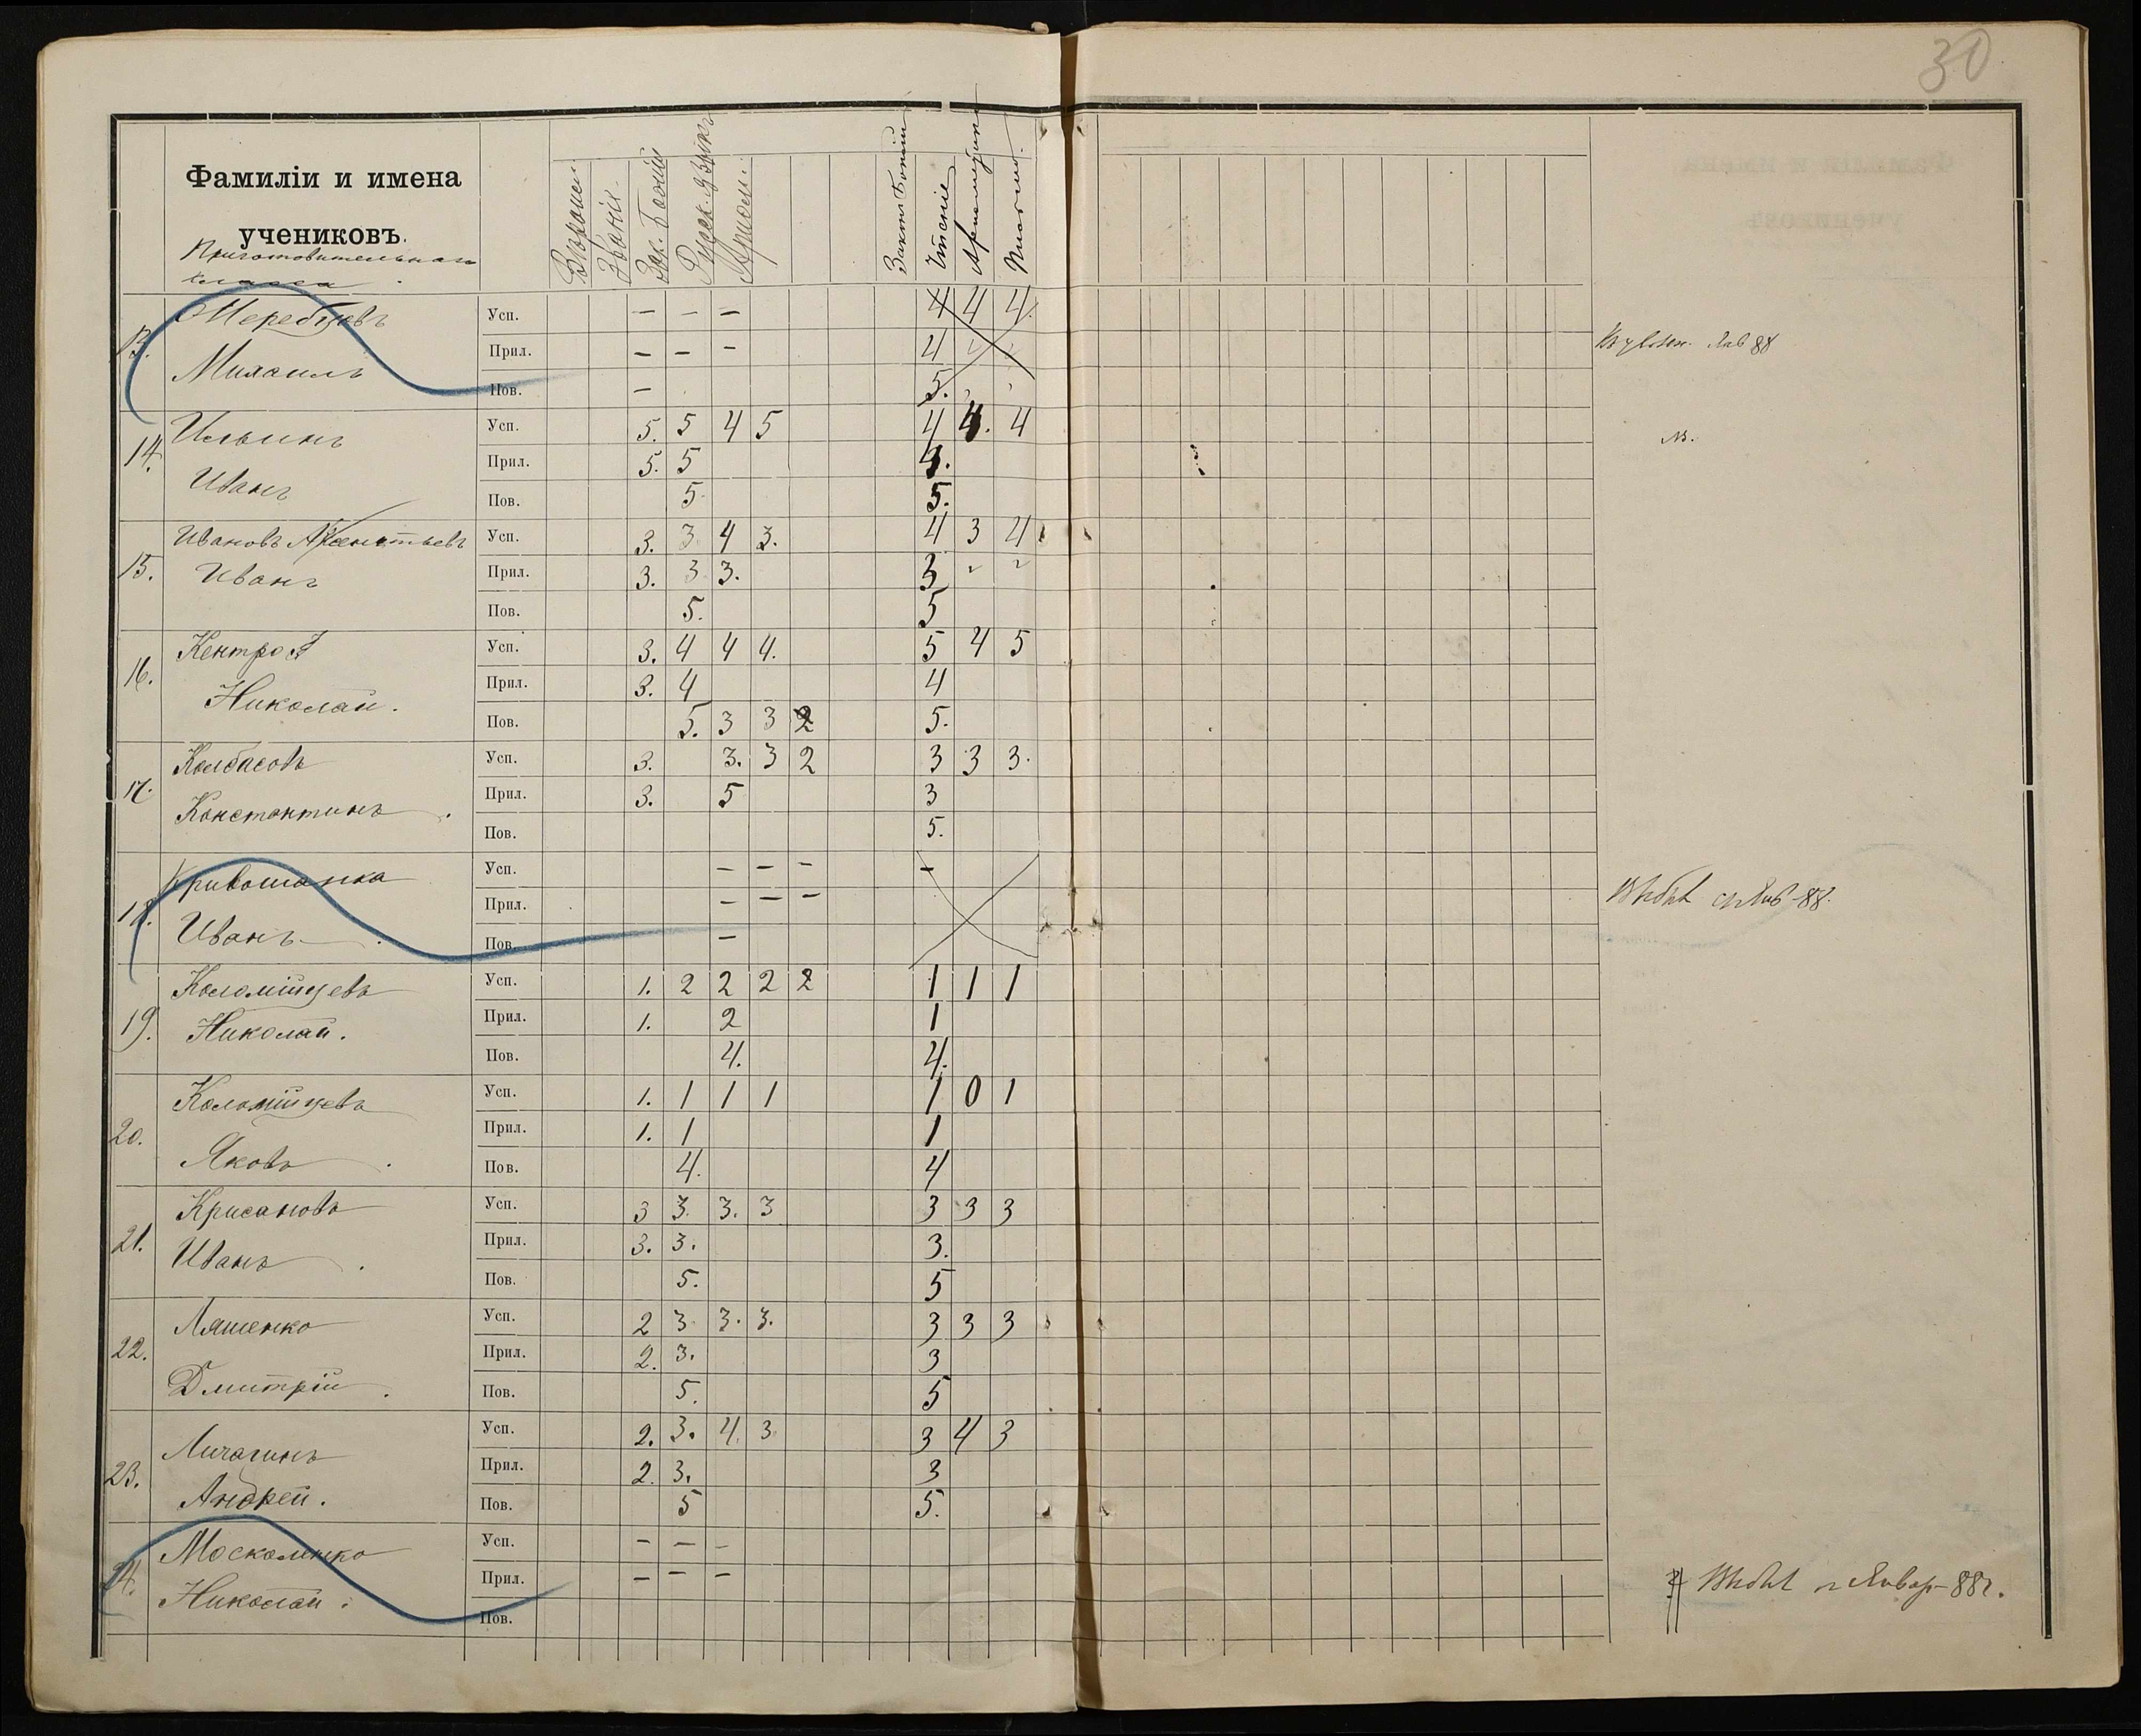 30
Фамиліи и имена
учениковъ.
Приготовительнаго
класса
Зак. Божій
Русск. языкъ
Законъ Божій
Чтеніе
Арифметика
Письмо.
13. Жеребцовъ
Михаилъ
Усп. — — — 4 4 4.
Прил. — — — 4
Пов. — 5.
14. Ильинъ
Иванъ
Усп. 5. 5 4 5 4 4. 4
Прил. 5. 5 4.
Пов. 5. 5.
15. Ивановъ
Иванъ
Усп. 3. 3 4 3. 4 3 4
Прил. 3. 3 3. 3
Пов. 5. 5
16. Николай.
Усп. 3. 4 4 4. 5 4 5
Прил. 3. 4 4
Пов. 5. 3 3 2 5.
17. Колбасовъ
Константинъ.
Усп. 3. 3. 3 2 3 3 3.
Прил. 3. 5 3
Пов. 5.
18. Кривошапка
Иванъ.
Усп. — — — —
Прил. — — —
Пов. —
19. Коломійцевъ
Николай.
Усп. 1. 2 2 2 2 1 1 1
Прил. 1. 2 1
Пов. 4. 4.
20. Коломійцевъ
Яковъ.
Усп. 1. 1 1 1 1 0 1
Прил. 1. 1 1
Пов. 4. 4
21. Крисановъ
Иванъ.
Усп. 3 3. 3. 3 3 3 3
Прил. 3. 3. 3.
Пов. 5. 5
22. Ляшенко
Дмитрій.
Усп. 2 3 3. 3. 3 3 3
Прил. 2. 3. 3
Пов. 5. 5
23. Личагинъ
Андрей.
Усп. 2. 3. 4. 3 3 4 3
Прил. 2. 3. 3
Пов. 5 5.
24. Москаленко
Николай.
Усп. — — —
Прил. — — —
Пов.
88
Выбылъ съ Янв-88.
Выбылъ Январ-88г.